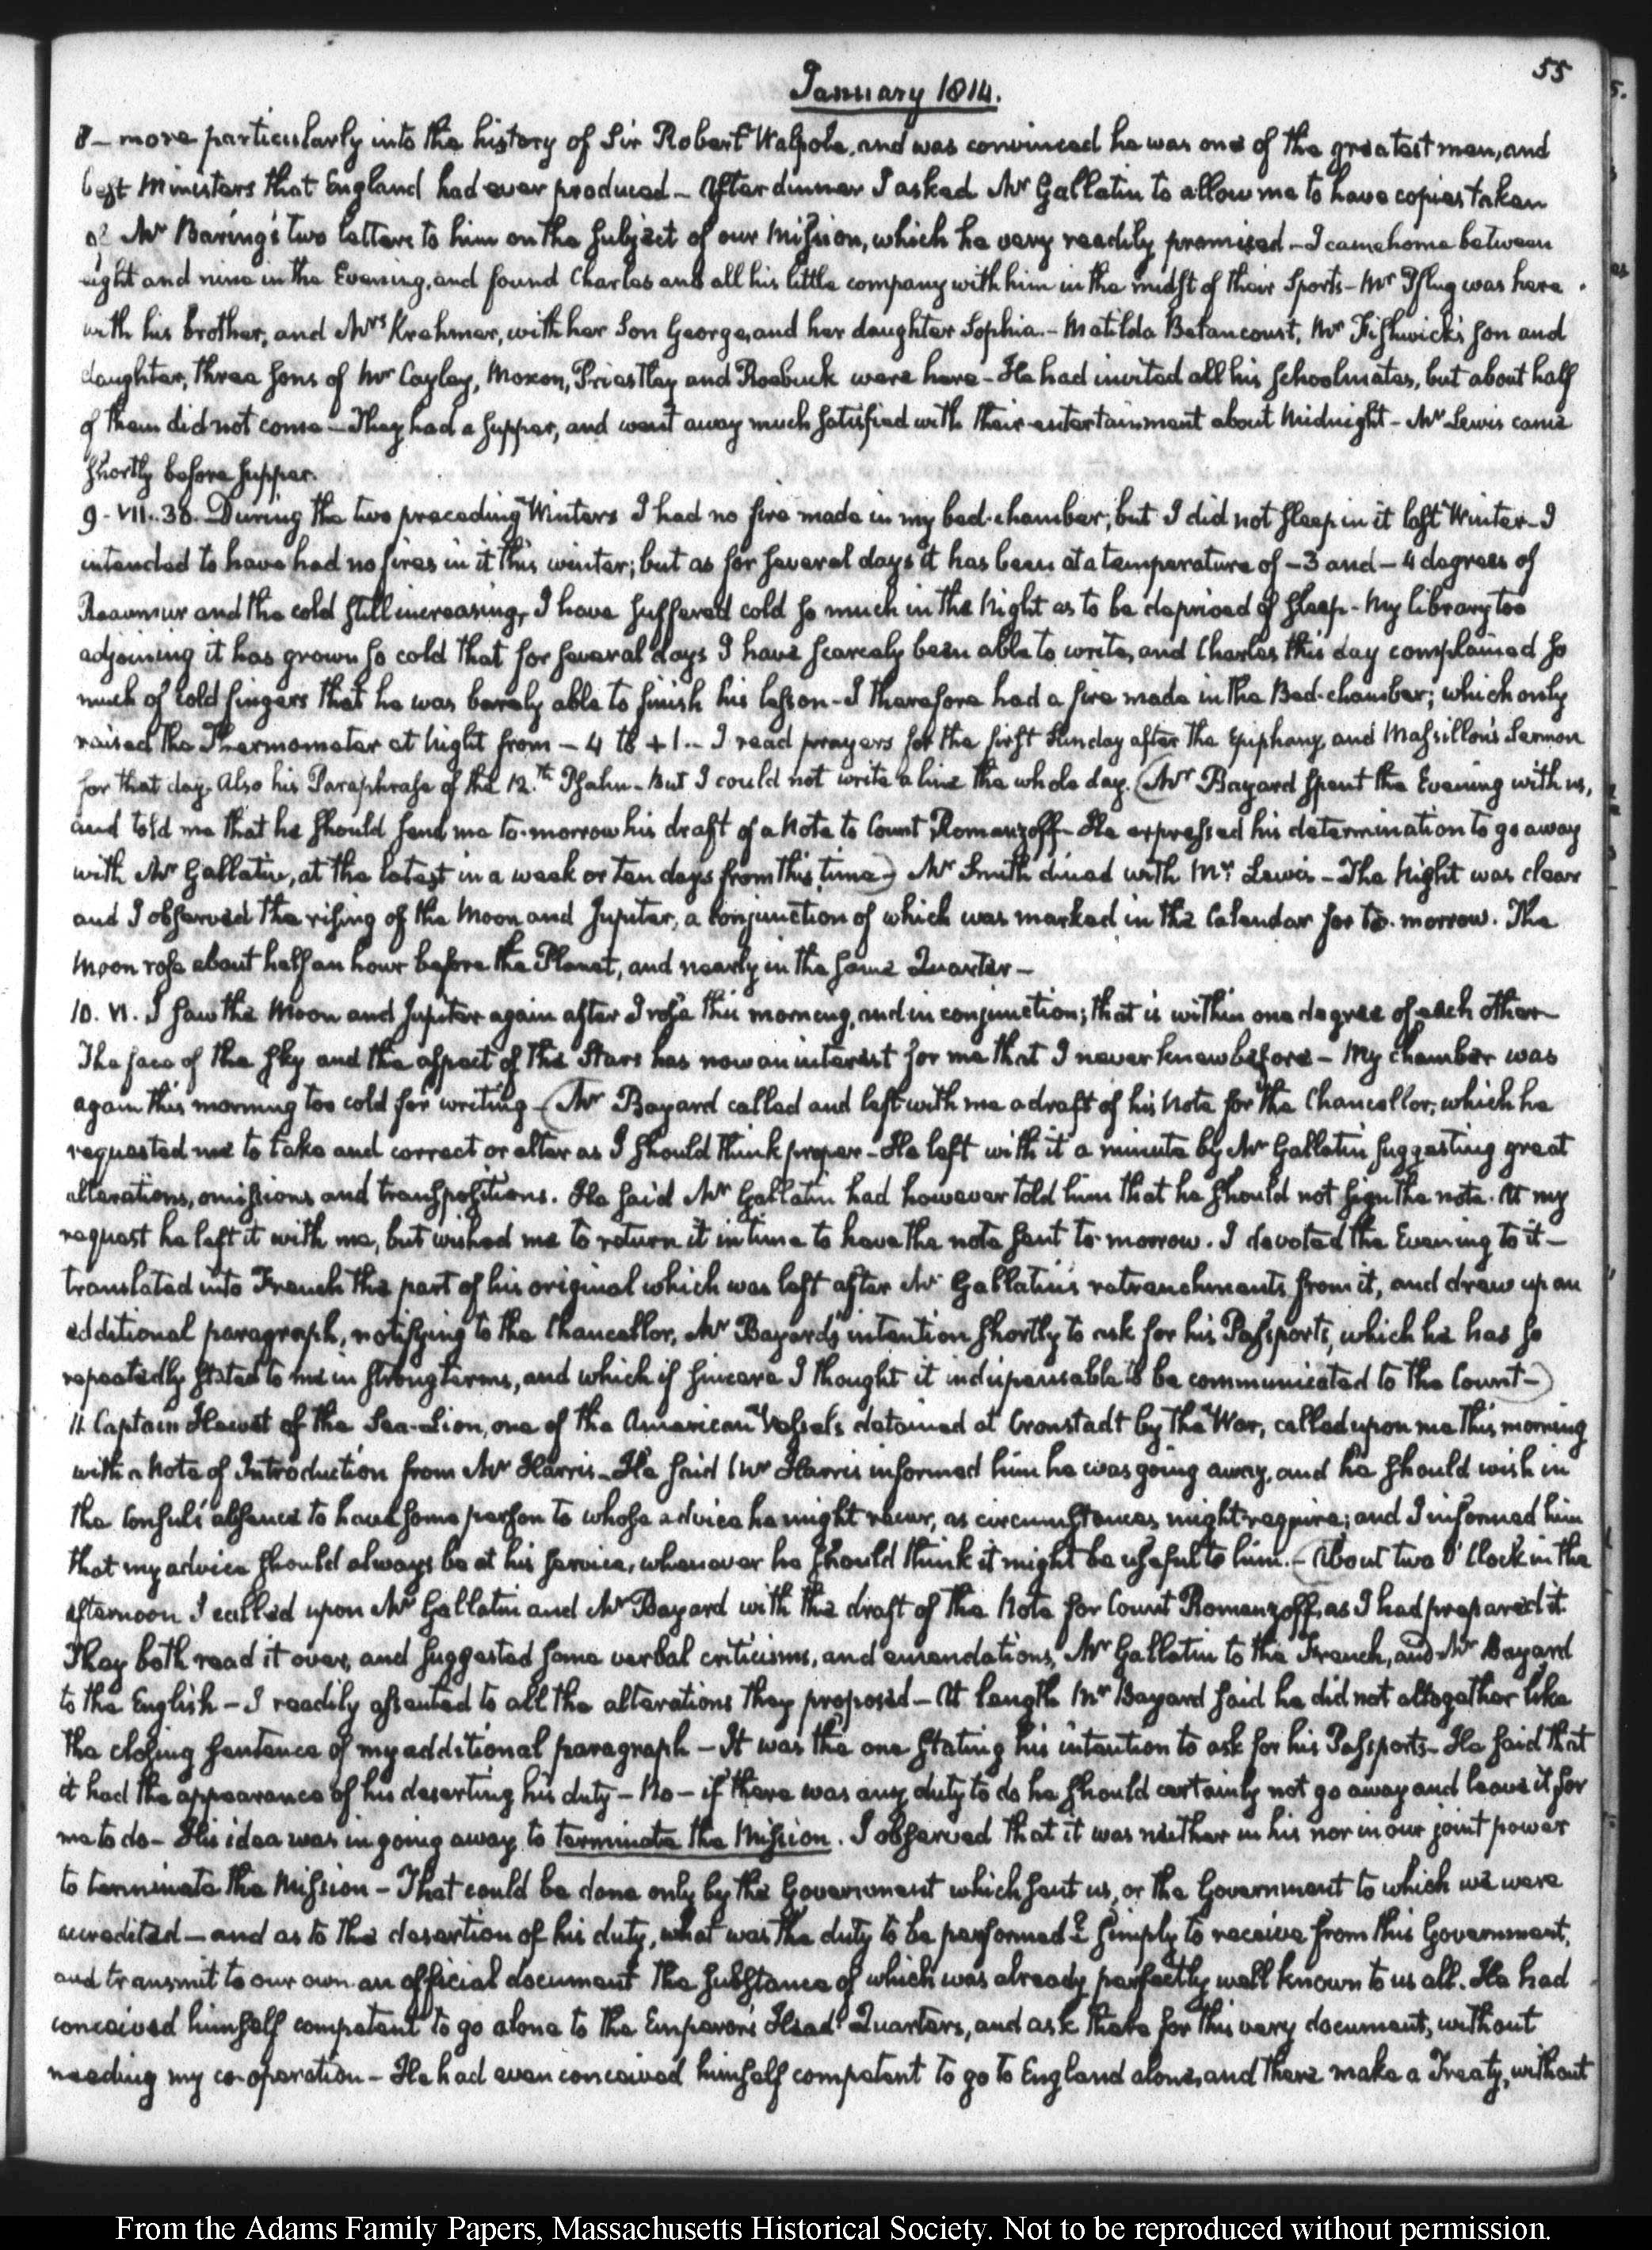 55
January 1814.
8 — more particularly into the history of Sir Robert Walpole, and was convinced he was one of the greatest men, and
best Ministers that England had ever produced — After dinner I asked Mr Gallatin to allow me to have copies taken
of Mr Baring's two letters to him on the subject of our Mission, which he very readily promised — I came home between
eight and nine in the Evening, and found Charles and all his little company with him in the midst of their Sports — Mr Pflug was here
with his brother, and Mrs Krehmer, with her Son George, and her daughter Sophia. — Matilda Betancourt, Mr Fishwick's son and
daughter, three sons of Mr Cayley, Moxon, Priestley and Roebuck were here — He had invited all his schoolmates, but about half
of them did not come — They had a supper, and went away much satisfied with their entertainment about Midnight — Mr Lewis came
shortly before supper.
9. VII..30. During the two preceding Winters I had no fire made in my bed-chamber; but I did not sleep in it last Winter — I
intended to have had no fires in it this winter; but as for several days it has been at a temperature of —3 and —4 degrees of
Reaumur and the cold still increasing, I have suffered cold so much in the Night as to be deprived of sleep — My library too
adjoining it has grown so cold that for several days I have scarcely been able to write, and Charles this day complained so
much of cold fingers that he was barely able to finish his lesson — I therefore had a fire made in the Bed-chamber; which only
raised the Thermometer at Night from — 4 to + 1. — I read prayers for the first Sunday after the Epiphany, and Massillon's Sermon
for that day. Also his Paraphrase of the 12.th Psalm — But I could not write a line the whole day. (Mr Bayard spent the Evening with us,
and told me that he should send me to-morrow his draft of a Note to Count Romanzoff — He expressed his determination to go away
with Mr Gallatin, at the latest in a week or ten days from this time —) Mr Smith dined with Mr Lewis — The Night was clear
and I observed the rising of the Moon and Jupiter, a conjunction of which was marked in the Calendar for to-morrow. The
Moon rose about half an hour before the Planet, and nearly in the same Quarter —
10. VI. I saw the Moon and Jupiter again after I rose this morning, and in conjunction; that is within one degree of each other —
The face of the Sky and the aspect of the Stars has now an interest for me that I never knew before — My chamber was
again this morning too cold for writing — (Mr Bayard called and left with me a draft of his Note for the Chancellor, which he
requested me to take and correct or alter as I should think proper — He left with it a minute by Mr Gallatin suggesting great
alterations, omissions and transpositions. He said Mr Gallatin had however told him that he should not sign the note. At my
request he left it with me, but wished me to return it in time to have the note sent to-morrow. I devoted the Evening to it —
translated into French the part of his original which was left after Mr Gallatin's retrenchments from it, and drew up an
additional paragraph, notifying to the Chancellor, Mr Bayard's intention shortly to ask for his Passports, which he has so
repeatedly stated to me in strong terms, and which if sincere I thought it indispensable to be communicated to the Count —)
11. Captain Hewet of the Sea-Lion, one of the American Vessels detained at Cronstadt by the War, called upon me this morning
with a Note of Introduction from Mr Harris — He said Mr Harris informed him he was going away, and he should wish in
the Consul's absence to have some person to whose advice he might recur, as circumstances might require; and I informed him
that my advice should always be at his service, whenever he should think it might be useful to him. — (About two O'Clock in the
afternoon I called upon Mr Gallatin and Mr Bayard with the draft of the Note for Count Romanzoff, as I had prepared it.
They both read it over, and suggested some verbal criticisms, and emendations, Mr Gallatin to the French, and Mr Bayard
to the English — I readily assented to all the alterations they proposed — At length Mr Bayard said he did not altogether like
the closing sentence of my additional paragraph — It was the one stating his intention to ask for his Passports — He said that
it had the appearance of his deserting his duty — No — if there was any duty to do he should certainly not go away and leave it for
me to do — His idea was in going away to terminate the Mission. I observed that it was neither in his nor in our joint power
to terminate the Mission — That could be done only by the Government which sent us, or the Government to which we were
accredited — and as to the desertion of his duty, what was the duty to be performed? Simply to receive from this Government,
and transmit to our own an official document the substance of which was already perfectly well known to us all. He had
conceived himself competent to go alone to the Emperor's Head Quarters, and ask there for this very document, without
needing my co-operation — He had even conceived himself competent to go to England alone, and there make a Treaty, without
From the Adams Family Papers, Massachusetts Historical Society. Not to be reproduced without permission.